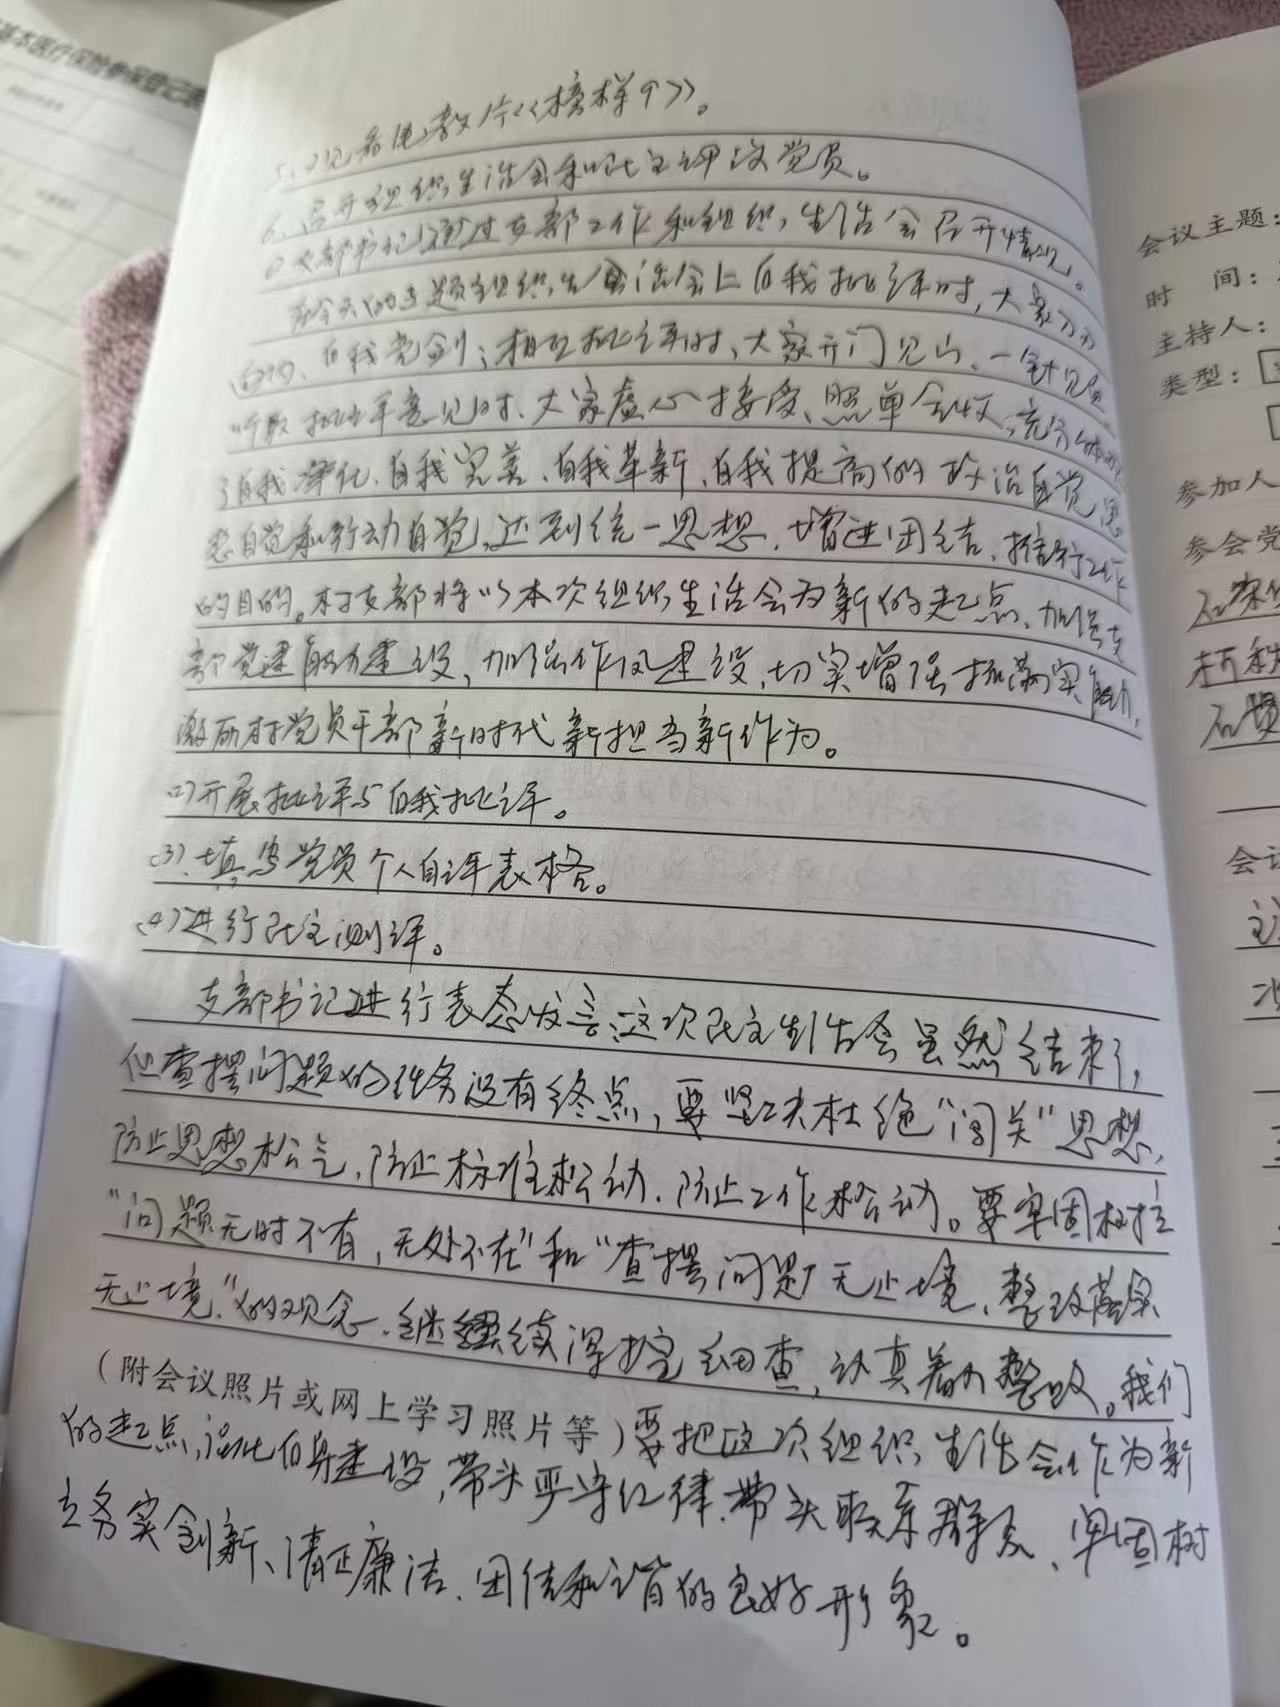 基本医疗保险参保登记表
5、观看电教片《榜样9》。
6、召开组织生活会和民主评议党员。
(1)支部书记通过支部工作和组织生活会召开情况。
在今天的专题组织生活会上自我批评时，大家刀刃
向内、自我党剑；相互批评时，大家开门见山、一针见血
听取批评意见时、大家虚心接受、照单全收；充分体现
了自我净化、自我完善、自我革新、自我提高的政治自觉、思
想自觉和行动自觉，达到统一思想、增进团结、推行工作
的目的。村支部将以本次组织生活会为新的起点、加强支
部党建能力建设，加强作风建设，切实增强抓落实能力，
激励村党员干部新时代新担当新作为。
(2)开展批评与自我批评。
(3)、填写党员个人自评表格。
(4)进行民主测评。
支部书记进行表态发言：这次民主生活会虽然结束了，
但查摆问题的任务没有终点，要坚决杜绝“闯关”思想，
防止思想松气，防止标准松动、防止工作松动。要牢固树立
“问题无时不有，无处不在”和“查摆问题无止境、整改落实
无止境”的观念、继续深挖细查，认真着力整改。我们
（附会议照片或网上学习照片等）要把这次组织生活会作为新
的起点，强化自身建设，带头严守纪律、带头联系群众、牢固树
立务实创新、清正廉洁、团结和谐的良好形象。
会议主题：
时 间：
主持人：
类型：
参加人
参会党
会议